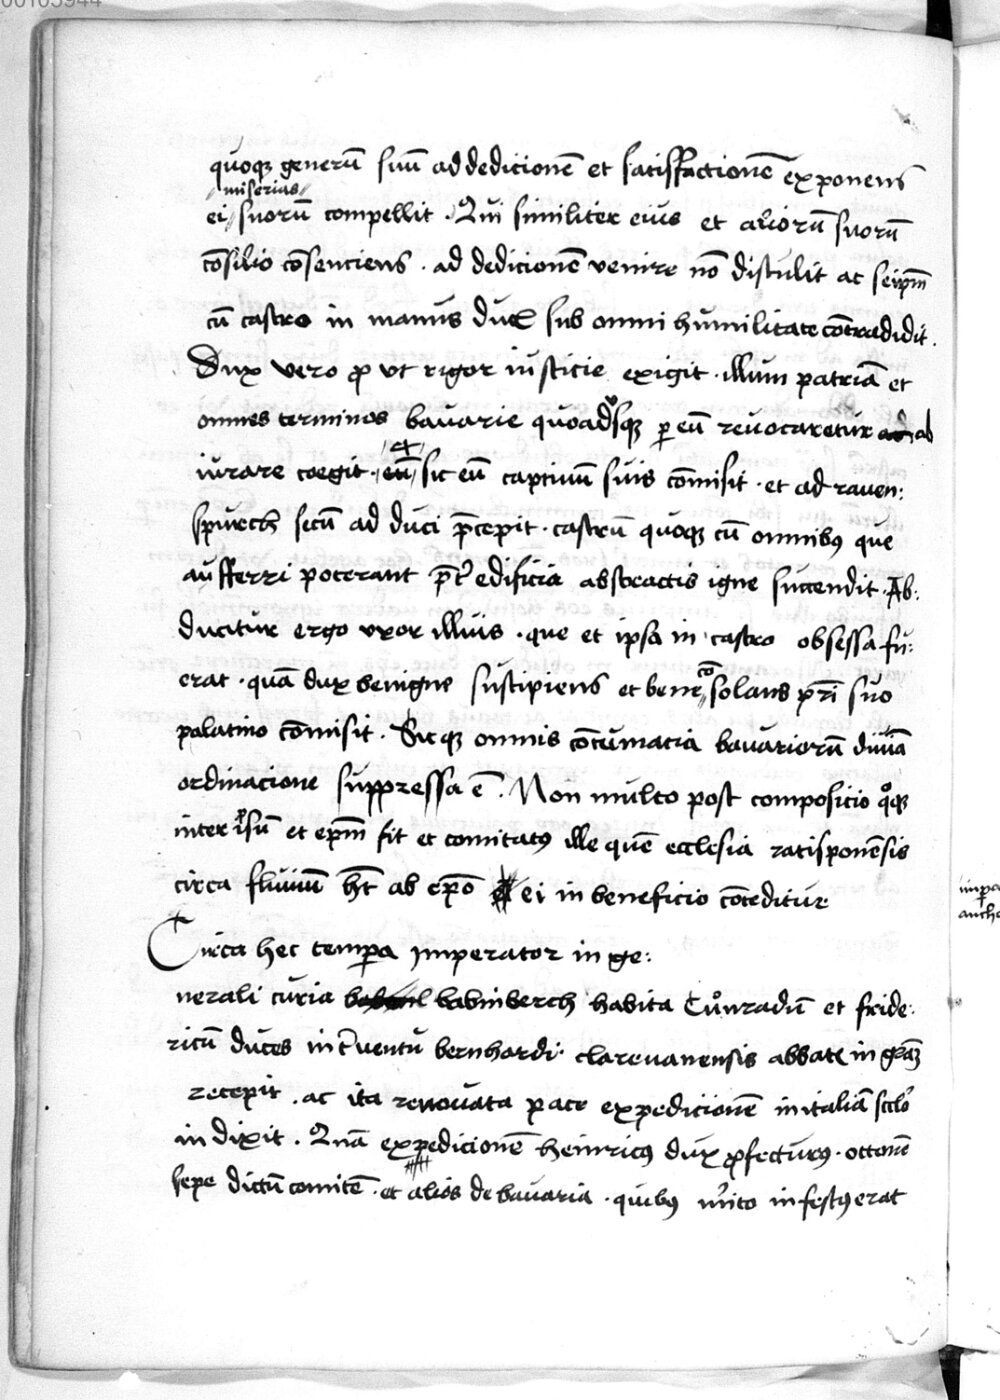 00103944
quoqꝫ generū suū ad dedicionē et satisfactionē exponens
miserias
ei suorū compellit . Qui similiter eius et aliorū suorū
cōsilio cōsenciens . ad dedicionē venire nō distulit ac seipm̄
cū castro in manus duc̄ sub omni humilitate cōtradidit .
Dux vero ꝓ vt rigor iusticie exigit . illum patriā et
omnes terminos bauarie quoadusqꝫ ꝑ eū reuocaretur ab
iurare coegit . sic eū captiuū suis cōmisit . et ad rauen:
spurch secū ad duci p̄cepit . castrū quoqꝫ cū omnibꝰ que
aufferri poterant p̄t̄ edificia abstractis igne succendit . Ab:
ducitur ergo vxor illius . que et ipsa in castro obsessa fu:
erat . quā dux benigne suscipiens et bene cōsolans pr̄i suo
palatino cōmisit . Sicqꝫ omnis cōtumacia bauariorū diuīa
ordinacione suppressa ē . Non multo post composicio qͦqꝫ
inter ip̄sū et ep̄m fit et comitatꝰ ille quē ecclesia ratisponēsis
circa fluuiū hȳt ab ep̄o ei in beneficio cōceditur
Circa hec tempora Imperator in ge:
nerali curia babinberch habita Cuͦnradū et fride:
ricū duces int̄uentu bernhardi clareuanensis abbatꝭ in gr̄aꝫ
recepit . ac ita renouata pace expedicionē in italiā sc̄do
indixit . Quā expedicionē heinricꝰ dux ꝓfecturꝰ . ottonē
sepe dictū comitē . et alios de bauaria . quibꝰ m̄ito infestꝰ erat